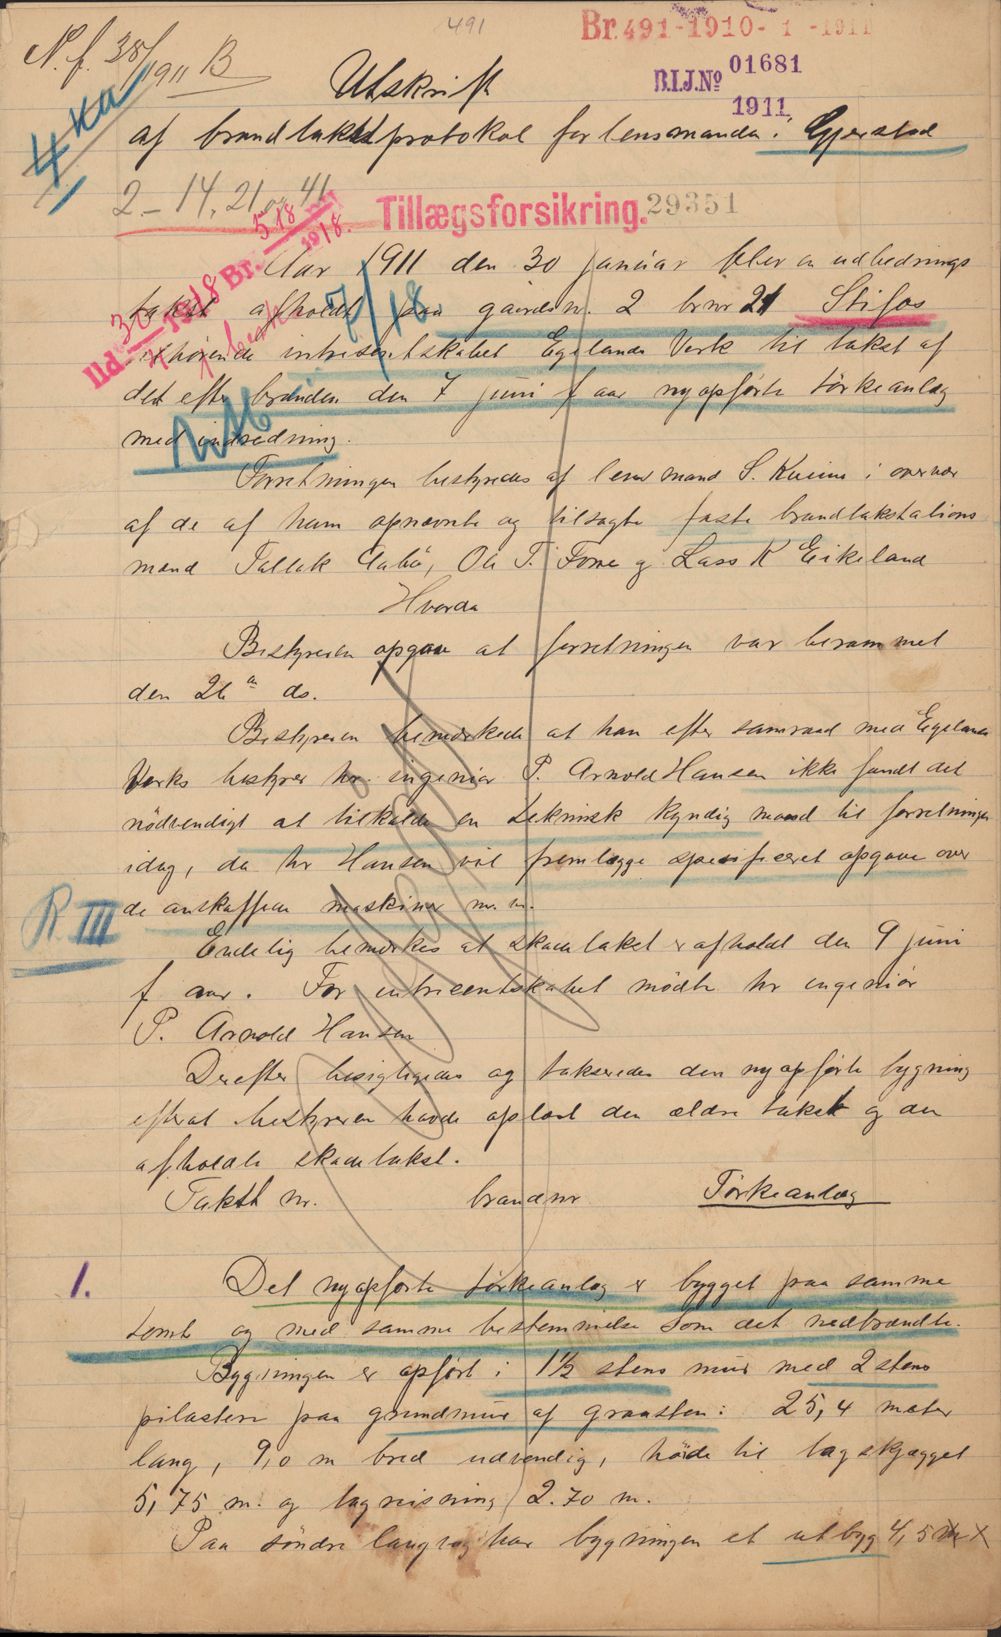 491
Br. 491-1910- 1 -1911
N. f. 38/1911 B
B.I.J.No 01681
1911
Utskrift
4 
af brandtakstprotokol for lensmanden i Gjerstad
2 - 14, 21 og 41
Tillægsforsikring. 29351
Br. 518 1918.
Ild 1918
Aar 1911 den 30 januar blev en udbedrings
takst afholdt paa gaardsnr. 2 brnr 21 Stifos
tilhørende intresentskabet Egelands Verk til takst af
det efter branden den 7 juni f aar nyopførte törkeanlæg
med indredning.
Forretningen bestyredes af lensmand S. i overvær
af de af ham opnævnte og tilsagte faste brandtakstations
mænd Tallak , Ole T. Fone og Lass K Eikeland
Hvorda
Bestyreren opgav at forretningen var berammet
den 26 ds.
Bestyreren bemærkede at han efter samraad med Egelands
Verks bestyrer hr. ingeniør P. Arnold Hansen ikke fandt det
nödvendigt at tilkalde en teknisk kyndig mand til forretningen
idag, da hr Hansen vil fremlægge spesificeret opgave over
R III
de anskaffede maskiner m. m.
Endelig bemerkes at skadetakst er afholdt den 9 juni
f aar. For intrecentskabet mödte hr ingeniör
P. Arnold Hansen
Derefter besigtigedes og takseredes den nyopførte bygning
efterat bestyreren havde oplæst den ældre takst og den
afholdte skadetakst.
Takst nr. brandnr Törkeanlæg
1. Det nyopførte törkeanlæg er bygget paa samme
tomt og med samme bestemmelse som det nedbrændte.
Bygningen er opført i 1½ stens mur med 2 stens
pilastere paa grundmur af graasten: 25,4 meter
lang, 9,0 m bred udvendig, höide til tagskjægget
5,75 m. og tagreisning 2.70 m.
Paa söndre langvæg har bygningen et utbyg 4,5 m x